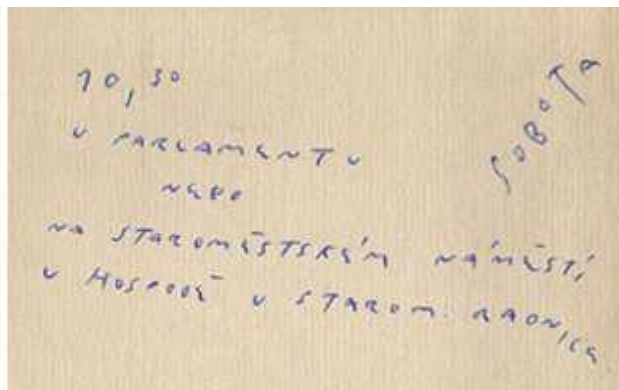 10,30
SOBOTA
U PARLAMENTU
NEBO
NA STAROMĚSTSKÉM NÁMĚSTÍ
U HOSPODĚ U STAROM. RADNICE